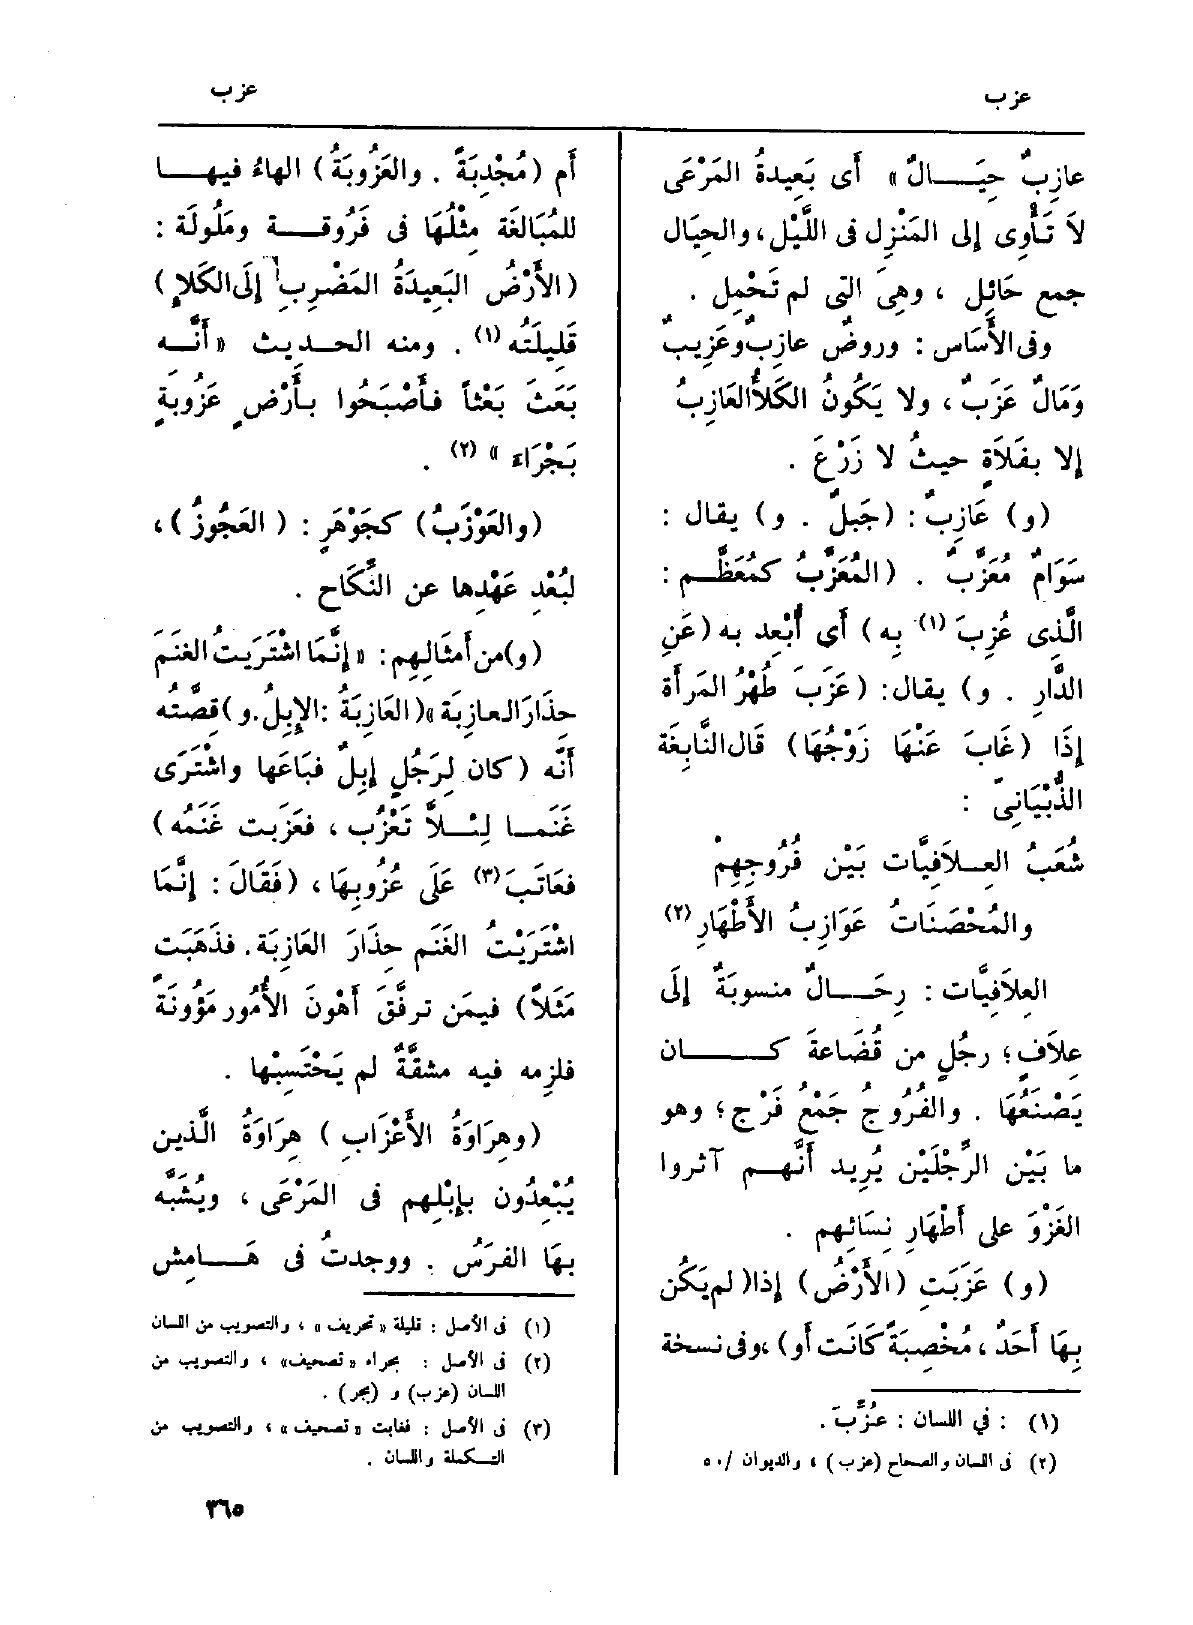 عزب
عزب
عازِبٌ حِيَالٌ» أَى بَعِيدةُ المَرْعَى
لاَ تَأْوِى إِلى المَنْزِل فى اللَّيْل، والحِيَال
جمع حَائِل ، وهىَ التى لم تَحْمِل .
وفى الأَسَاس : وروضٌ عازِبٌ وعَزِيبٌ
وَمَالٌ عَزَبٌ، ولا يَكُونُ الكَلأُ العَازِبُ
إلا بفَلاَةٍ حيثُ لا زَرْعَ .
(و) عَازِبٌ : (جَبَلٌ . و) يقال :
سَوَامٌ مُعَزَّبٌ . (المُعَزَّبُ كمُعَظَّم :
الَّذِى عُزِبَ (١) بِهِ) أَى أُبْعِد به (عَنِ
الدَّارِ . و) يقال : (عَزَبَ طُهْرُ المَرأَة
إِذَا (غَابَ عَنْهَا زَوْجُهَا) قَال النَّابِغَة
الذُّبْيَانِىّ :
شُعَبُ العِلاَفِيَّات بَيْن فُرُوجِهِمْ
والمُحْصَنَاتُ عَوَازِبُ الأَطْهَارِ (٢)
العِلاَفِيَّات : رِحَالٌ منسوبَةٌ إِلَى
عِلاَفٍ؛ رجُلٍ من قُضَاعَةَ كَان
يَصْنَعُهَا . والفُرُوجُ جَمْعُ فَرْج؛ وهو
ما بَيْن الرِّجْلَيْن يُرِيد أَنَّهم آثروا
الغَزْوَ على أَطْهَارِ نِسَائِهِم .
(و) عَزَبَتِ (الأَرْضُ) إِذا (لم يَكُن
بِهَا أَحَدٌ، مُخْصِبَةً كَانَت أو)، وفى نسخة
(١) : في اللسان : عُزِّبَ .
(٢) فى اللسان والصحاح (عزب) ، والديوان /٥٠
أَم (مُجْدِبَةً . والعَزُوبَةُ) الهاءُ فيها
للمُبَالغَة مِثْلُهَا فى فَرُوقة ومَلُولَة :
(الأَرْضُ البَعِيدَةُ المَضْرِبِ إِلَى الكَلإِ)
قَلِيلَتُه (١) . ومنه الحديث «أَنَّه
بَعَثَ بَعْثاً فأَصْبَحُوا بأَرْضٍ عَزُوبَةٍ
بَجْرَاءَ » (٢) .
(والعَوْزَبُ) كجَوْهَرٍ : (العَجُوزُ)،
لبُعْدِ عَهْدِها عن النِّكَاح .
(و)من أَمثالِهِم : «إِنَّمَا اشْتَرَيتُ الغَنَمَ
حِذَارَ العازِبَة»(العَازِبَةُ : الإِبِلُ. و)قِصَّتُه
أَنَّه (كان لِرَجُلٍ إِبِلٌ فبَاعَها واشْتَرَى
غَنَما لِئلاَّ تَعْزُب ، فعَزَبت غَنَمُه)
فعَاتَبَ(٣) عَلَى عُزُوبِهَا، (فَقَالَ : إِنَّمَا
اشْتَرَيْتُ الغَنَم حِذَارَ العَازِبَة. فذَهَبَت
مَثَلاً) فيمَن ترفَّقَ أَهْوَنَ الأُمُور مَؤُونَةً
فلزِمه فيه مشقَّةٌ لم يَحْتَسِبْها .
(وهِرَاوَةُ الأَعْزَابِ) هِرَاوَةُ الَّذين
يُبْعِدُون بإِبْلِهم فى المَرْعَى ، ويُشَبَّه
بهَا الفَرَسُ . ووجدتُ فى هَامِش
(١) فى الأصل : قليلة «تحريف» ، والتصويب من اللسان
(٢) فى الأصل : بحراء «تصحيف» ، والتصويب من
اللسان (عزب) و (بجر) .
(٣) فى الأصل : فغابت «تصحيف» ، والتصويب من
التكملة واللسان .
٣٦٥